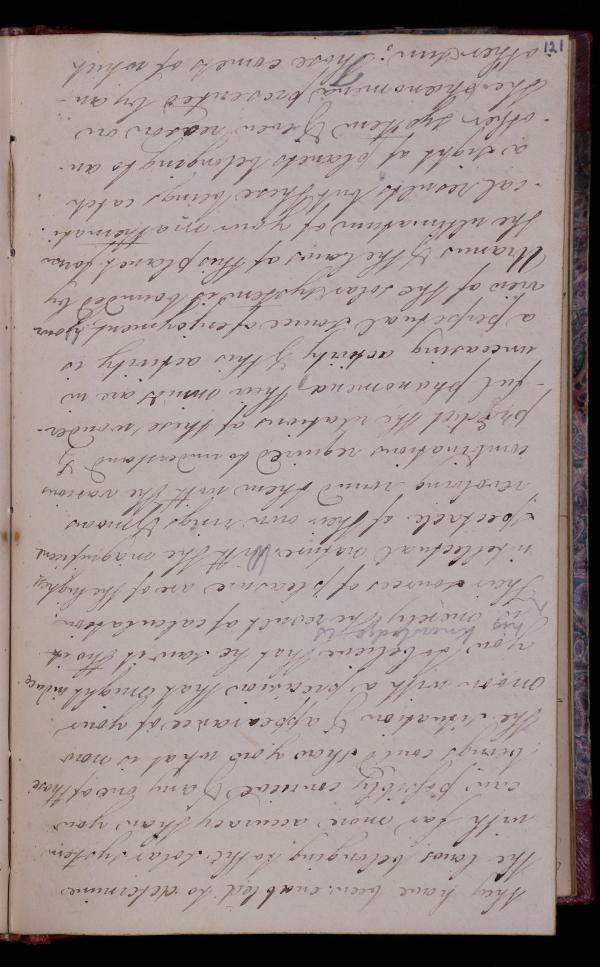 121
they have been enabled to determine
the laws belonging to the solar system
with far more accuracy than you
can possibly conceive & any one of those
beings could show you what is now
the situation & appearance of your
moon with a precision that might induce
you to believe that he saw it tho it
his knowledge is
is merely the result of calculation.
Their sources of pleasure are of the highest
intellectual nature. With the magnificent
spectacle of their own rings & moons
revolving round them with the various
combinations required to understand &
predict the relations of these wonder-
-ful phænomena their minds are in
unceasing activity & this activity is
a perpetual source of enjoyment. Your
view of the solar system is bounded by
Uranus & the laws of this planet form
the ultimatum of your mathemati-
-cal results but these beings catch
a sight of planets belonging to an-
-other system & even reason on
the phænomena presented by an-
other sun; Those comets of which